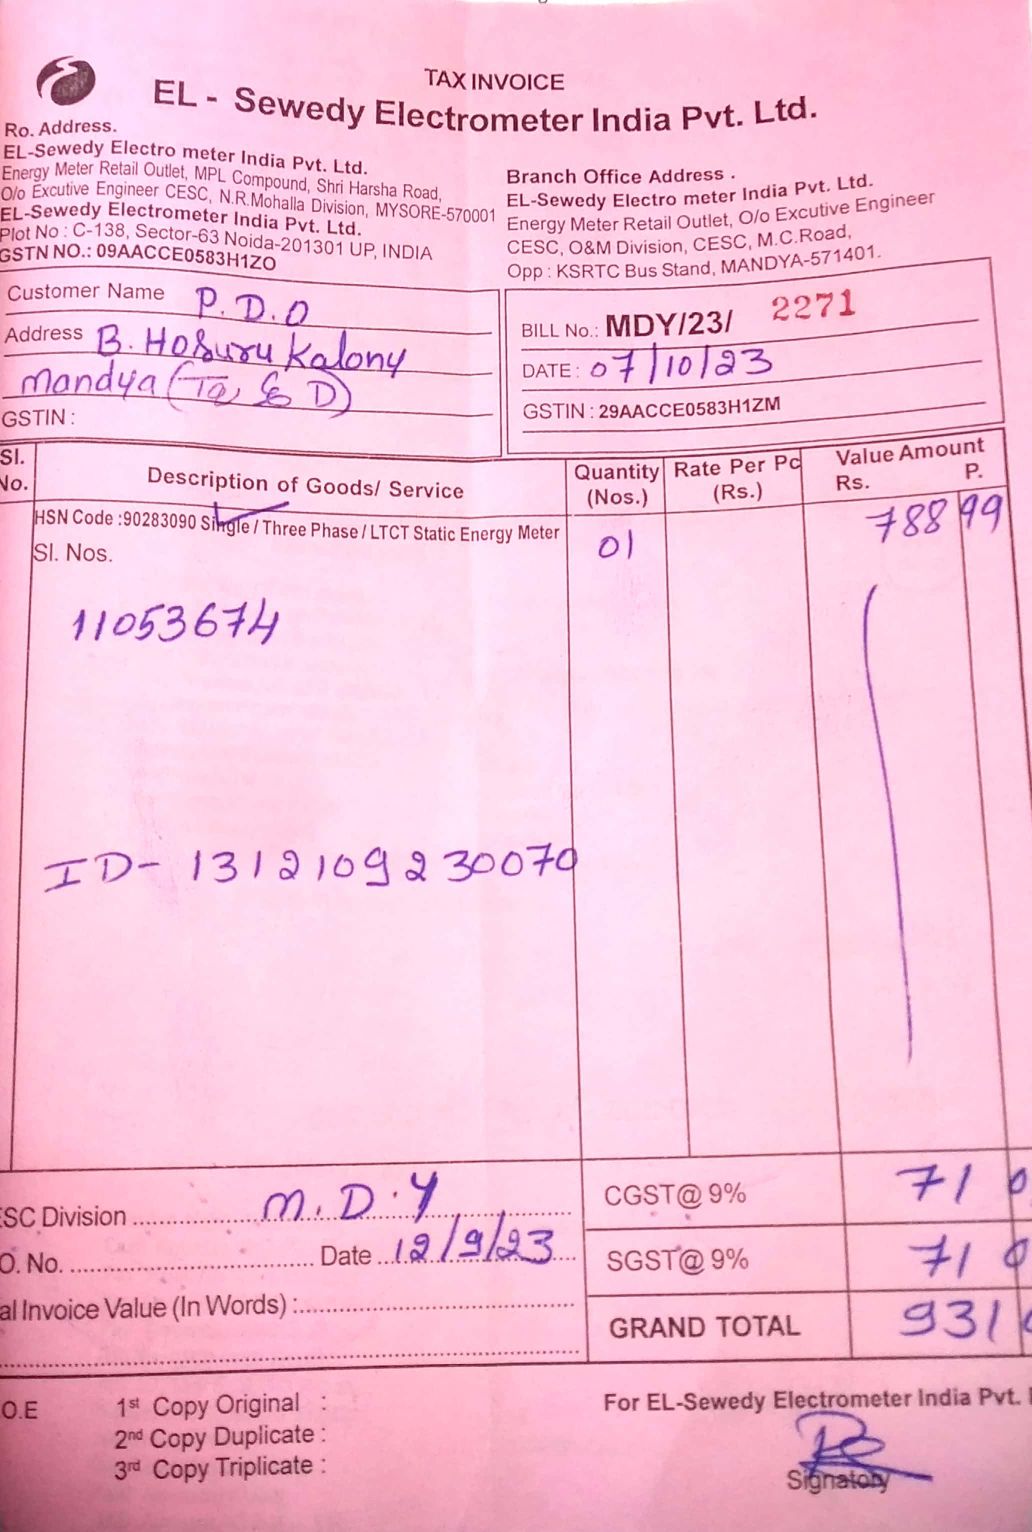 TAX INVOICE
EL - Sewedy Electrometer India Pvt. Ltd.
Ro. Address.
EL-Sewedy Electro meter India Pvt. Ltd.
Energy Meter Retail Outlet, MPL Compound, Shri Harsha Road,
O/o Excutive Engineer CESC, N.R.Mohalla Division, MYSORE-570001
EL-Sewedy Electrometer India Pvt. Ltd.
Plot No : C-138, Sector-63 Noida-201301 UP, INDIA
GSTN NO.: 09AACCE0583H1ZO
Branch Office Address .
EL-Sewedy Electro meter India Pvt. Ltd.
Energy Meter Retail Outlet, O/o Excutive Engineer
CESC, O&M Division, CESC, M.C.Road,
Opp : KSRTC Bus Stand, MANDYA-571401.
Customer Name P.D.O
Address B. Hosuru Kalony
Mandya (Tq & D)
GSTIN :
BILL No.: MDY/23/ 2271
DATE : 07/10/23
GSTIN : 29AACCE0583H1ZM
Sl. No. Description of Goods/ Service Quantity (Nos.) Rate Per Pc (Rs.) Value Amount Rs. P.
HSN Code :90283090 Single / Three Phase / LTCT Static Energy Meter 01 788 99
Sl. Nos.
11053674
ID- 1312109230070
ESC Division M.D.Y CGST@ 9% 71 0
O. No. Date 12/9/23 SGST@ 9% 71 0
al Invoice Value (In Words) : GRAND TOTAL 931
O.E 1st Copy Original :
2nd Copy Duplicate :
3rd Copy Triplicate :
For EL-Sewedy Electrometer India Pvt.
Signatory